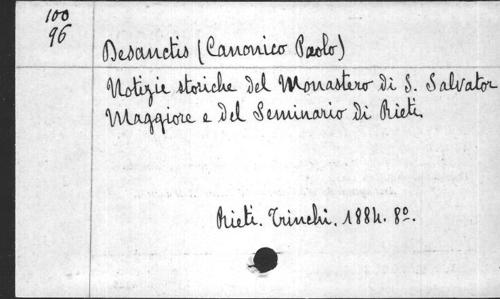 100
96
Desanctis (Canonico Paolo)
Notizie storiche del Monastero di S. Salvator
Maggiore e del Seminario di Rieti.
Rieti. Trinchi. 1884. 8º.